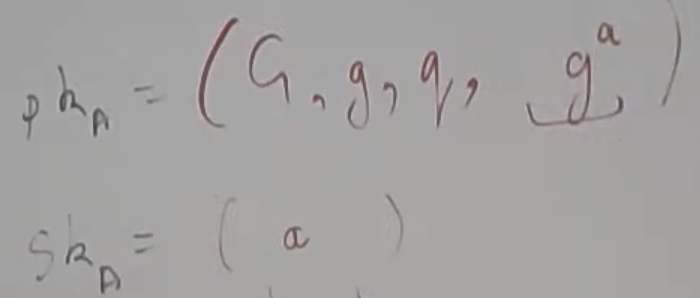 pk_A = (G, g, q, g^a)
sk_A = (a)